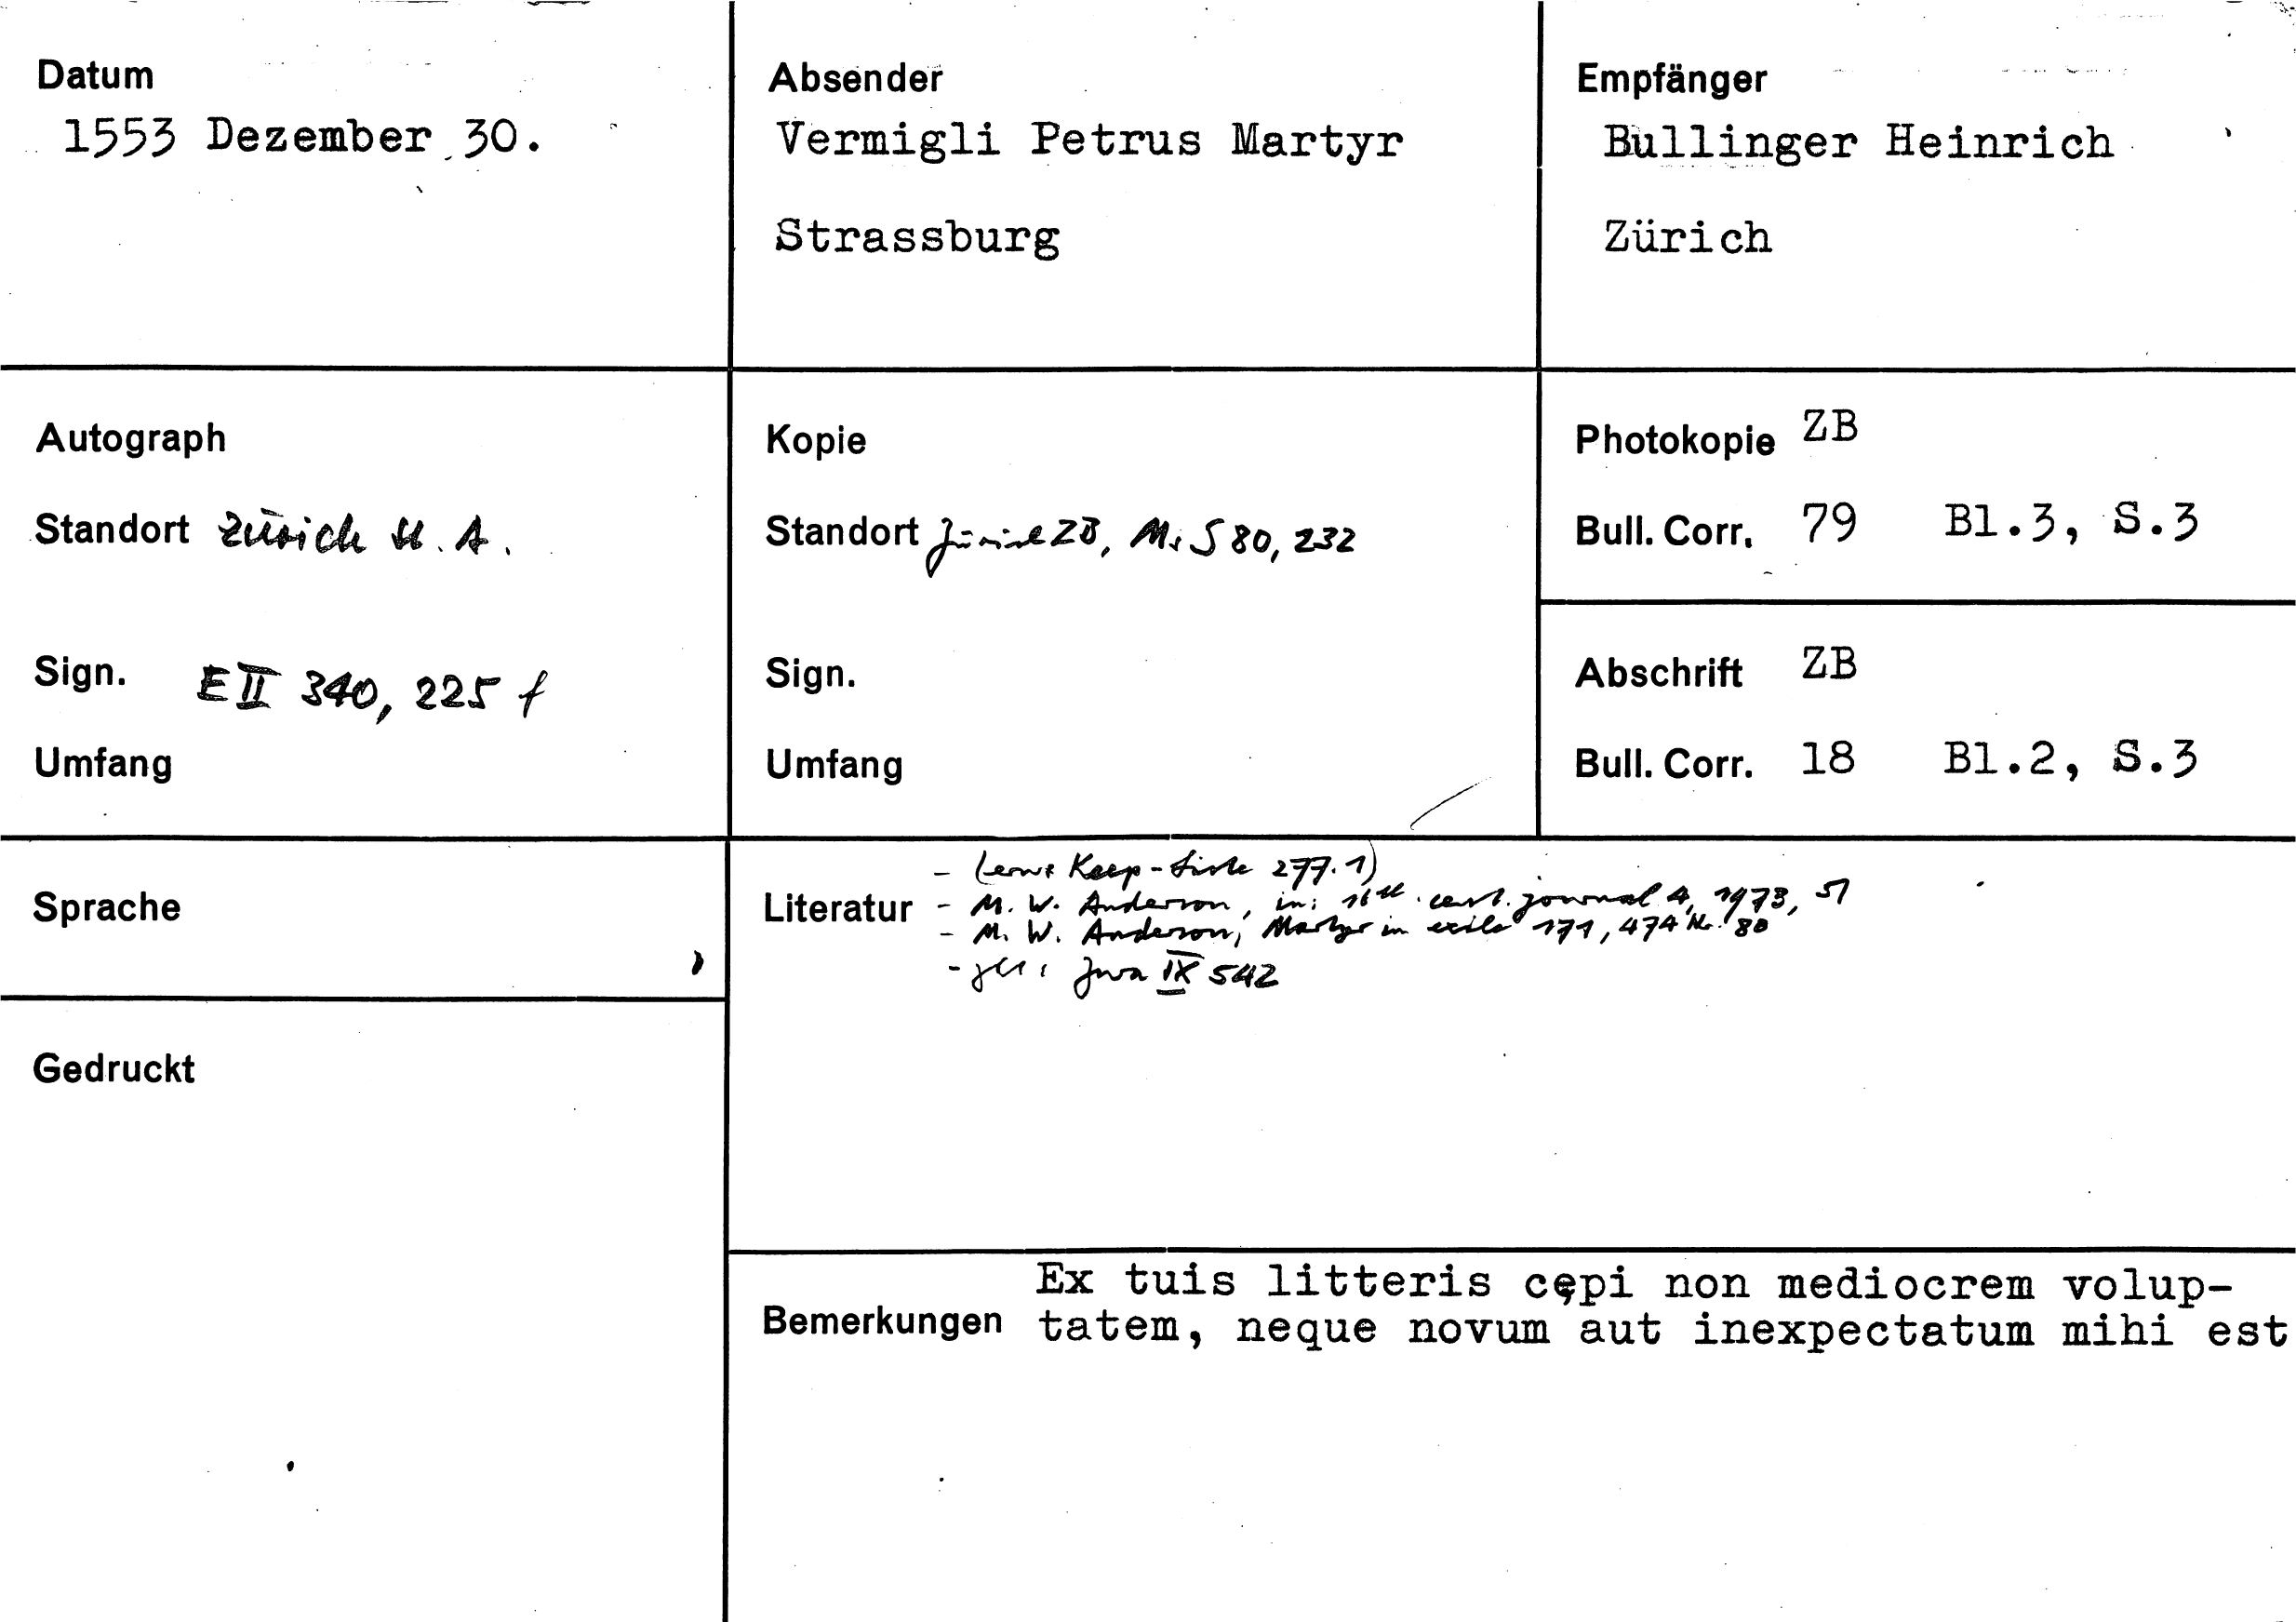 Datum
1553 Dezember 30.
Absender
Vermigli Petrus Martyr
Strassburg
Empfänger
Bullinger Heinrich
Zürich
Autograph
Standort Zürich St. A.
Sign. E II 340, 225 f
Umfang
Kopie
Standort Zürich ZB, Ms S 80, 232
Sign.
Umfang
Photokopie ZB
Bull. Corr. 79 Bl.3, S.3
Abschrift ZB
Bull. Corr. 18 Bl.2, S.3
Sprache
Gedruckt
- Keep-Liste 277.1)
Literatur - M. W. Anderson, in: 16th cent. journal 4, 1973, 51
- M. W. Anderson, Martyr in exile 171, 474 Nr. 80
- Zwa IX 542
Ex tuis litteris cępi non mediocrem volup-
Bemerkungen tatem, neque novum aut inexpectatum mihi est